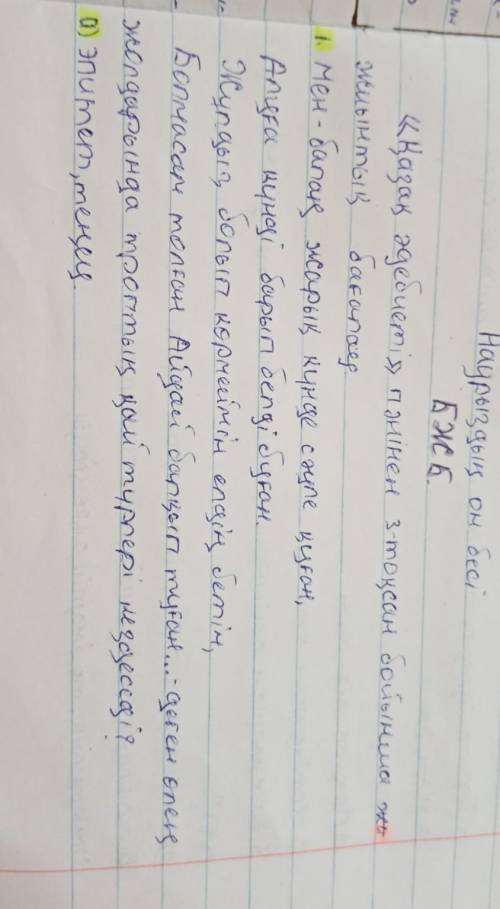 Наурыздың он бесі
БЖБ.
«Қазақ әдебиеті» пәнінен 3-тоқсан бойынша жи
жиынтық бағалау
1. Мен - балаң жарық күнде сәуле қуған,
Алуға күнді барып белді буған.
Жұлдыз болып көрмеймін елдің бетін,
Болмасам толған Айдай балқып туған...-деген өлең
жолдарында троптың қай түрлері кездеседі?
а) эпитет, теңеу